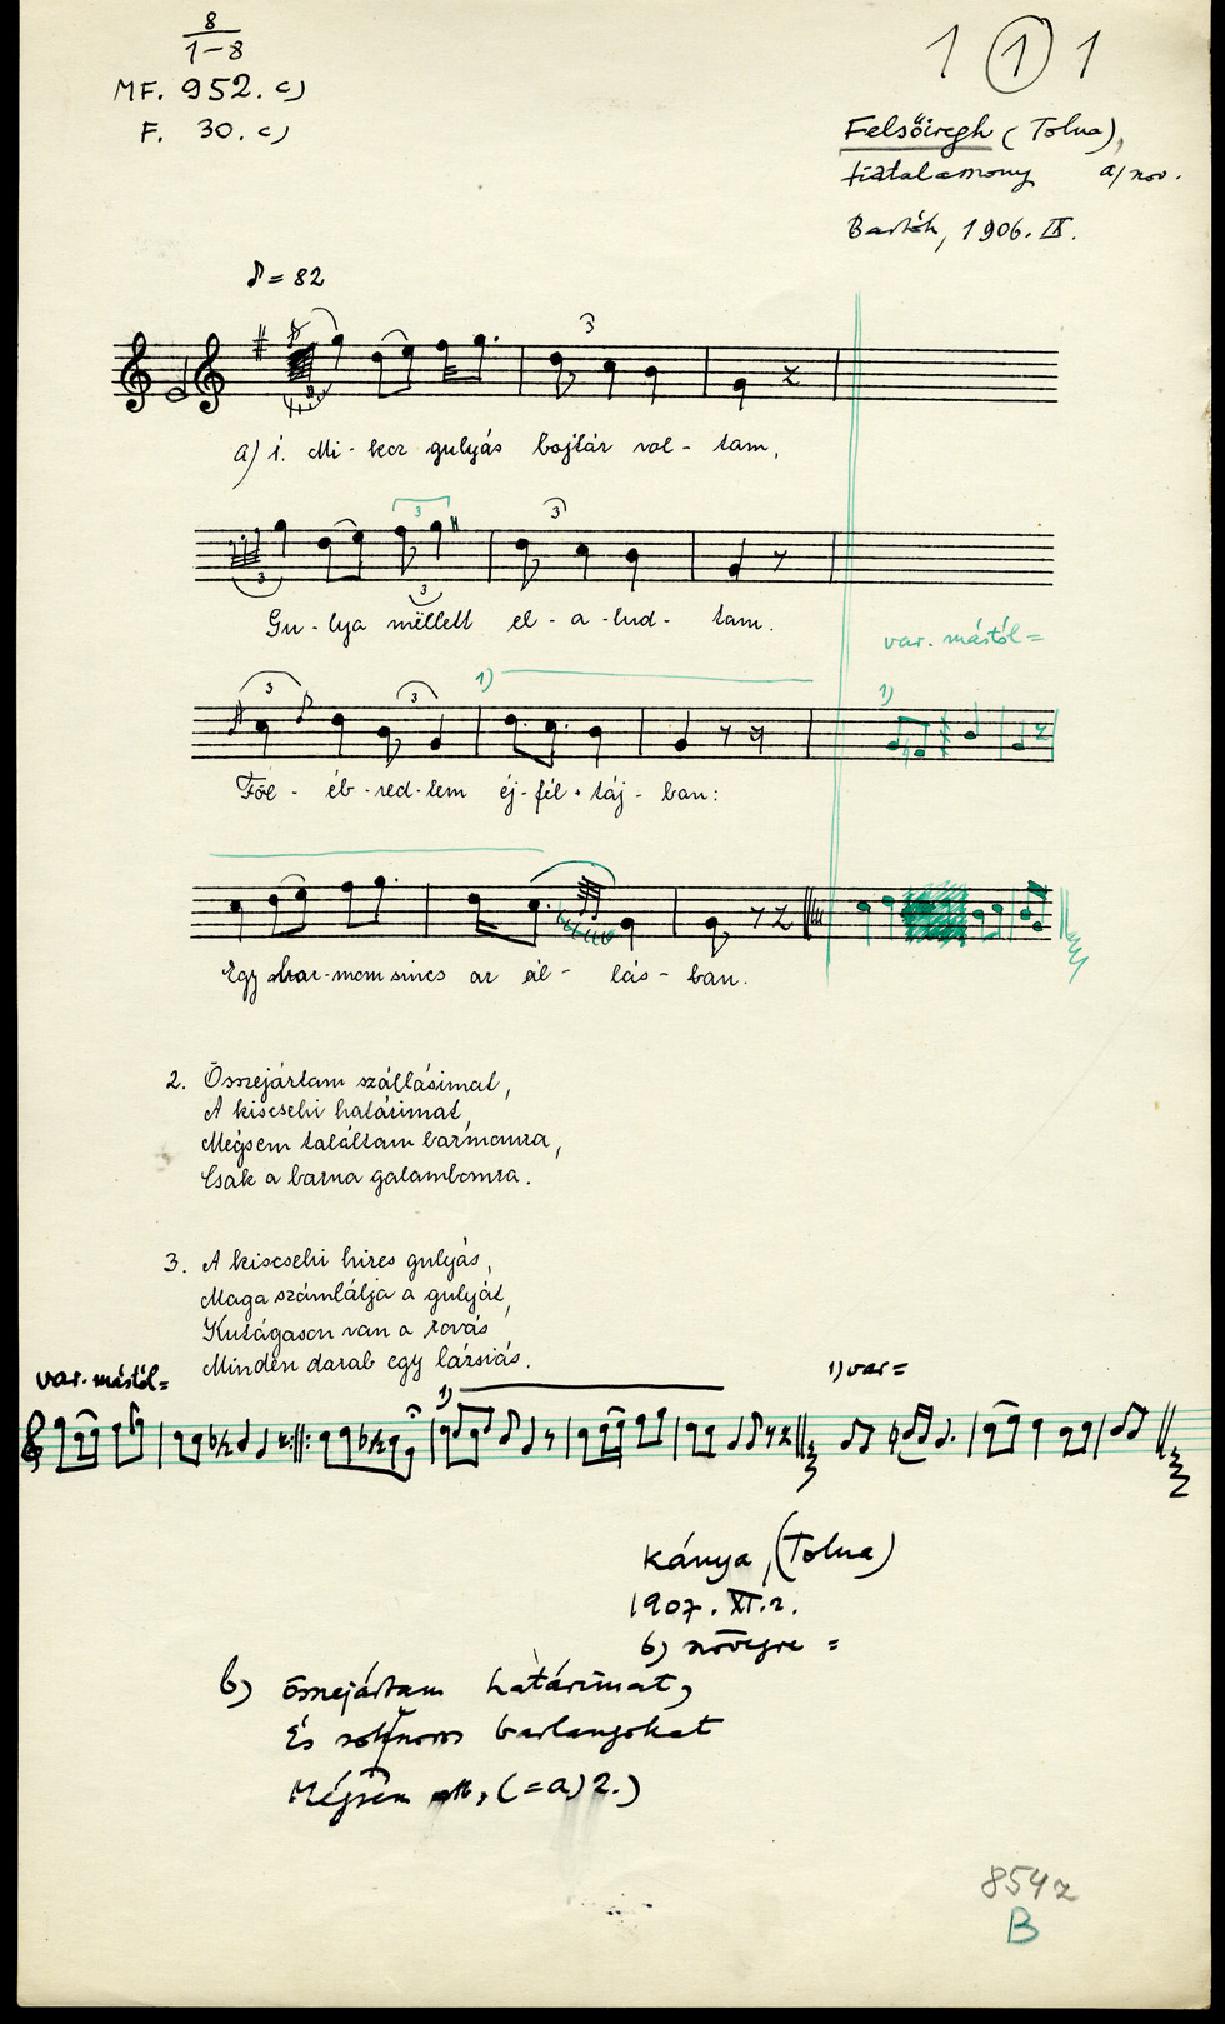 8
1-8
MF. 952. c)
F. 30. c)
1 1 1
Felsőiregh (Tolna),
fiatalasszony a/ nov.
Bartók, 1906. IX.
♪ = 82
3
a) 1. Mi - kor gulyás bojtár vol - tam,
3
3
3
3
Gu - lya mëllett el - a - lud - tam.
var. mástól =
3
3
1)
1)
Föl - éb - red - tem éj - fél - táj - ban:
Egy bar - mom sincs az ál - lás - ban.
2. Összejártam szállásimat,
A kiscsehi határimat,
Mégsem találtam barmomra,
Csak a barna galambomra.
3. A kiscsehi hires gulyás,
Maga számlálja a gulyát,
Kutágason van a rovás,
Mindën darab egy lázsiás.
var. mástól =
1)
1) var =
Kánya, (Tolna)
1907. XI. 2.
b) szövegre =
b) Összejártam határimat,
És barlangokat
Mégsem stb, (=a) 2.)
8542
B